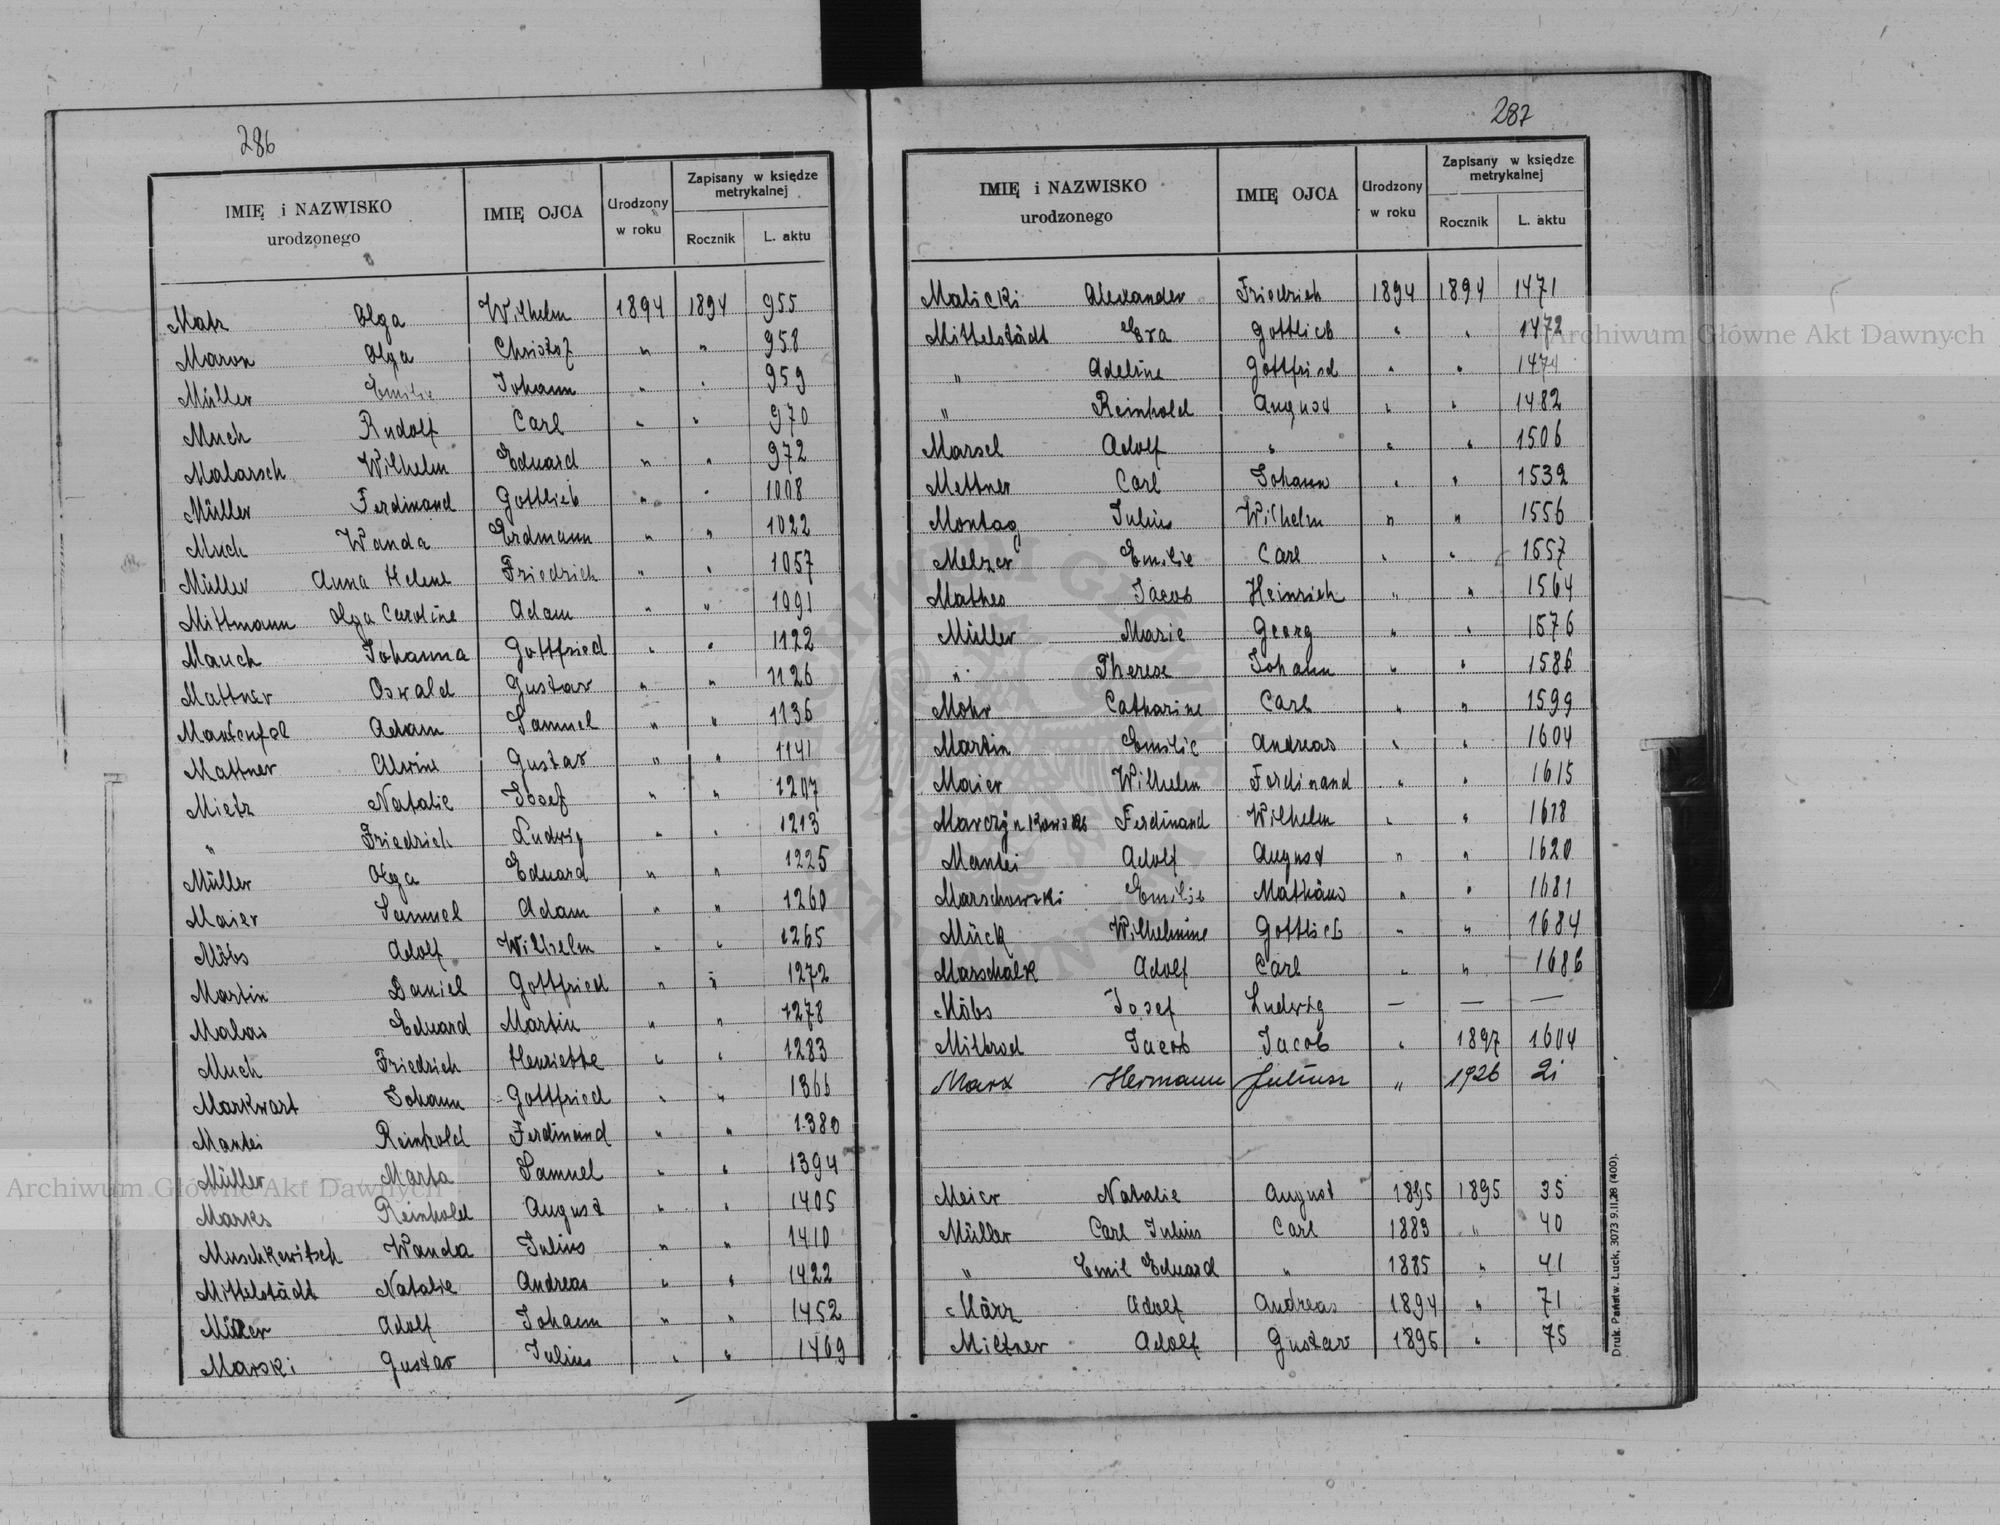 286
IMIĘ i NAZWISKO urodzonego IMIĘ OJCA Urodzony w roku Zapisany w księdze metrykalnej Rocznik L. aktu
Matz Olga Wilhelm 1894 1894 955
Maron Olga Christof " " 958
Müller Emilie Johann " " 959
Much Rudolf Carl " " 970
Malarsch Wilhelm Eduard " " 972
Müller Ferdinand Gottlieb " " 1008
Much Wanda Erdmann " " 1022
Müller Anna Helene Friedrich " " 1057
Mittmann Olga Caroline Adam " " 1091
Mauch Johanna Gottfried " " 1122
Mattner Oswald Gustav " " 1126
Mantenfel Adam Samuel " " 1136
Mattner Alwine Gustav " " 1141
Mietz Natalie Josef " " 1207
" Friedrich Ludwig " " 1213
Müller Olga Eduard " " 1225
Maier Samuel Adam " " 1260
Möbs Adolf Wilhelm " " 1265
Martin Daniel Gottfried " " 1272
Eduard Martin " " 1278
Much Friedrich Henriette " " 1283
Markwart Johann Gottfried " " 1366
Mantei Reinhold Ferdinand " " 1380
Müller Marta Samuel " " 1394
Marks Reinhold August " " 1405
Muschkewitsch Wanda Julius " " 1410
Mittelstädt Natalie Andreas " " 1422
Adolf Johann " " 1452
Marski Gustav Julius " " 1469
287
IMIĘ i NAZWISKO urodzonego IMIĘ OJCA Urodzony w roku Zapisany w księdze metrykalnej Rocznik L. aktu
Malicki Alexander Friedrich 1894 1894 1471
Mittelstädt Eva Gottlieb " " 1472
" Adeline Gottfried " " 1474
" Reinhold August " " 1482
Marsel Adolf " " " 1506
Mettner Carl Johann " " 1532
Montag Julius Wilhelm " " 1556
Melzer Emilie Carl " " 1557
Mathes Jacob Heinrich " " 1564
Müller Marie Georg " " 1576
" Therese Johann " " 1586
Mohr Catharine Carl " " 1599
Martin Emilie Andreas " " 1604
Maier Wilhelm Ferdinand " " 1615
Ferdinand Wilhelm " " 1618
Mantei Adolf August " " 1620
Marschewski Emilie Mathäus " " 1681
Mück Wilhelmine Gottlieb " " 1684
Marschalk Adolf Carl " " 1686
Möbs Josef Ludwig — — —
Milbrod Jacob Jacob " 1897 1604
Marx Hermann Juliusz " 1926 2i
Meier Natalie August 1895 1895 35
Müller Carl Julius Carl 1883 " 40
" Emil Eduard " 1885 " 41
März Adolf Andreas 1894 " 71
Miltner Adolf Gustav 1895 " 75
Druk. Państw. Łuck, 3073 9.II.28 (400).
Archiwum Główne Akt Dawnych
Archiwum Główne Akt Dawnych